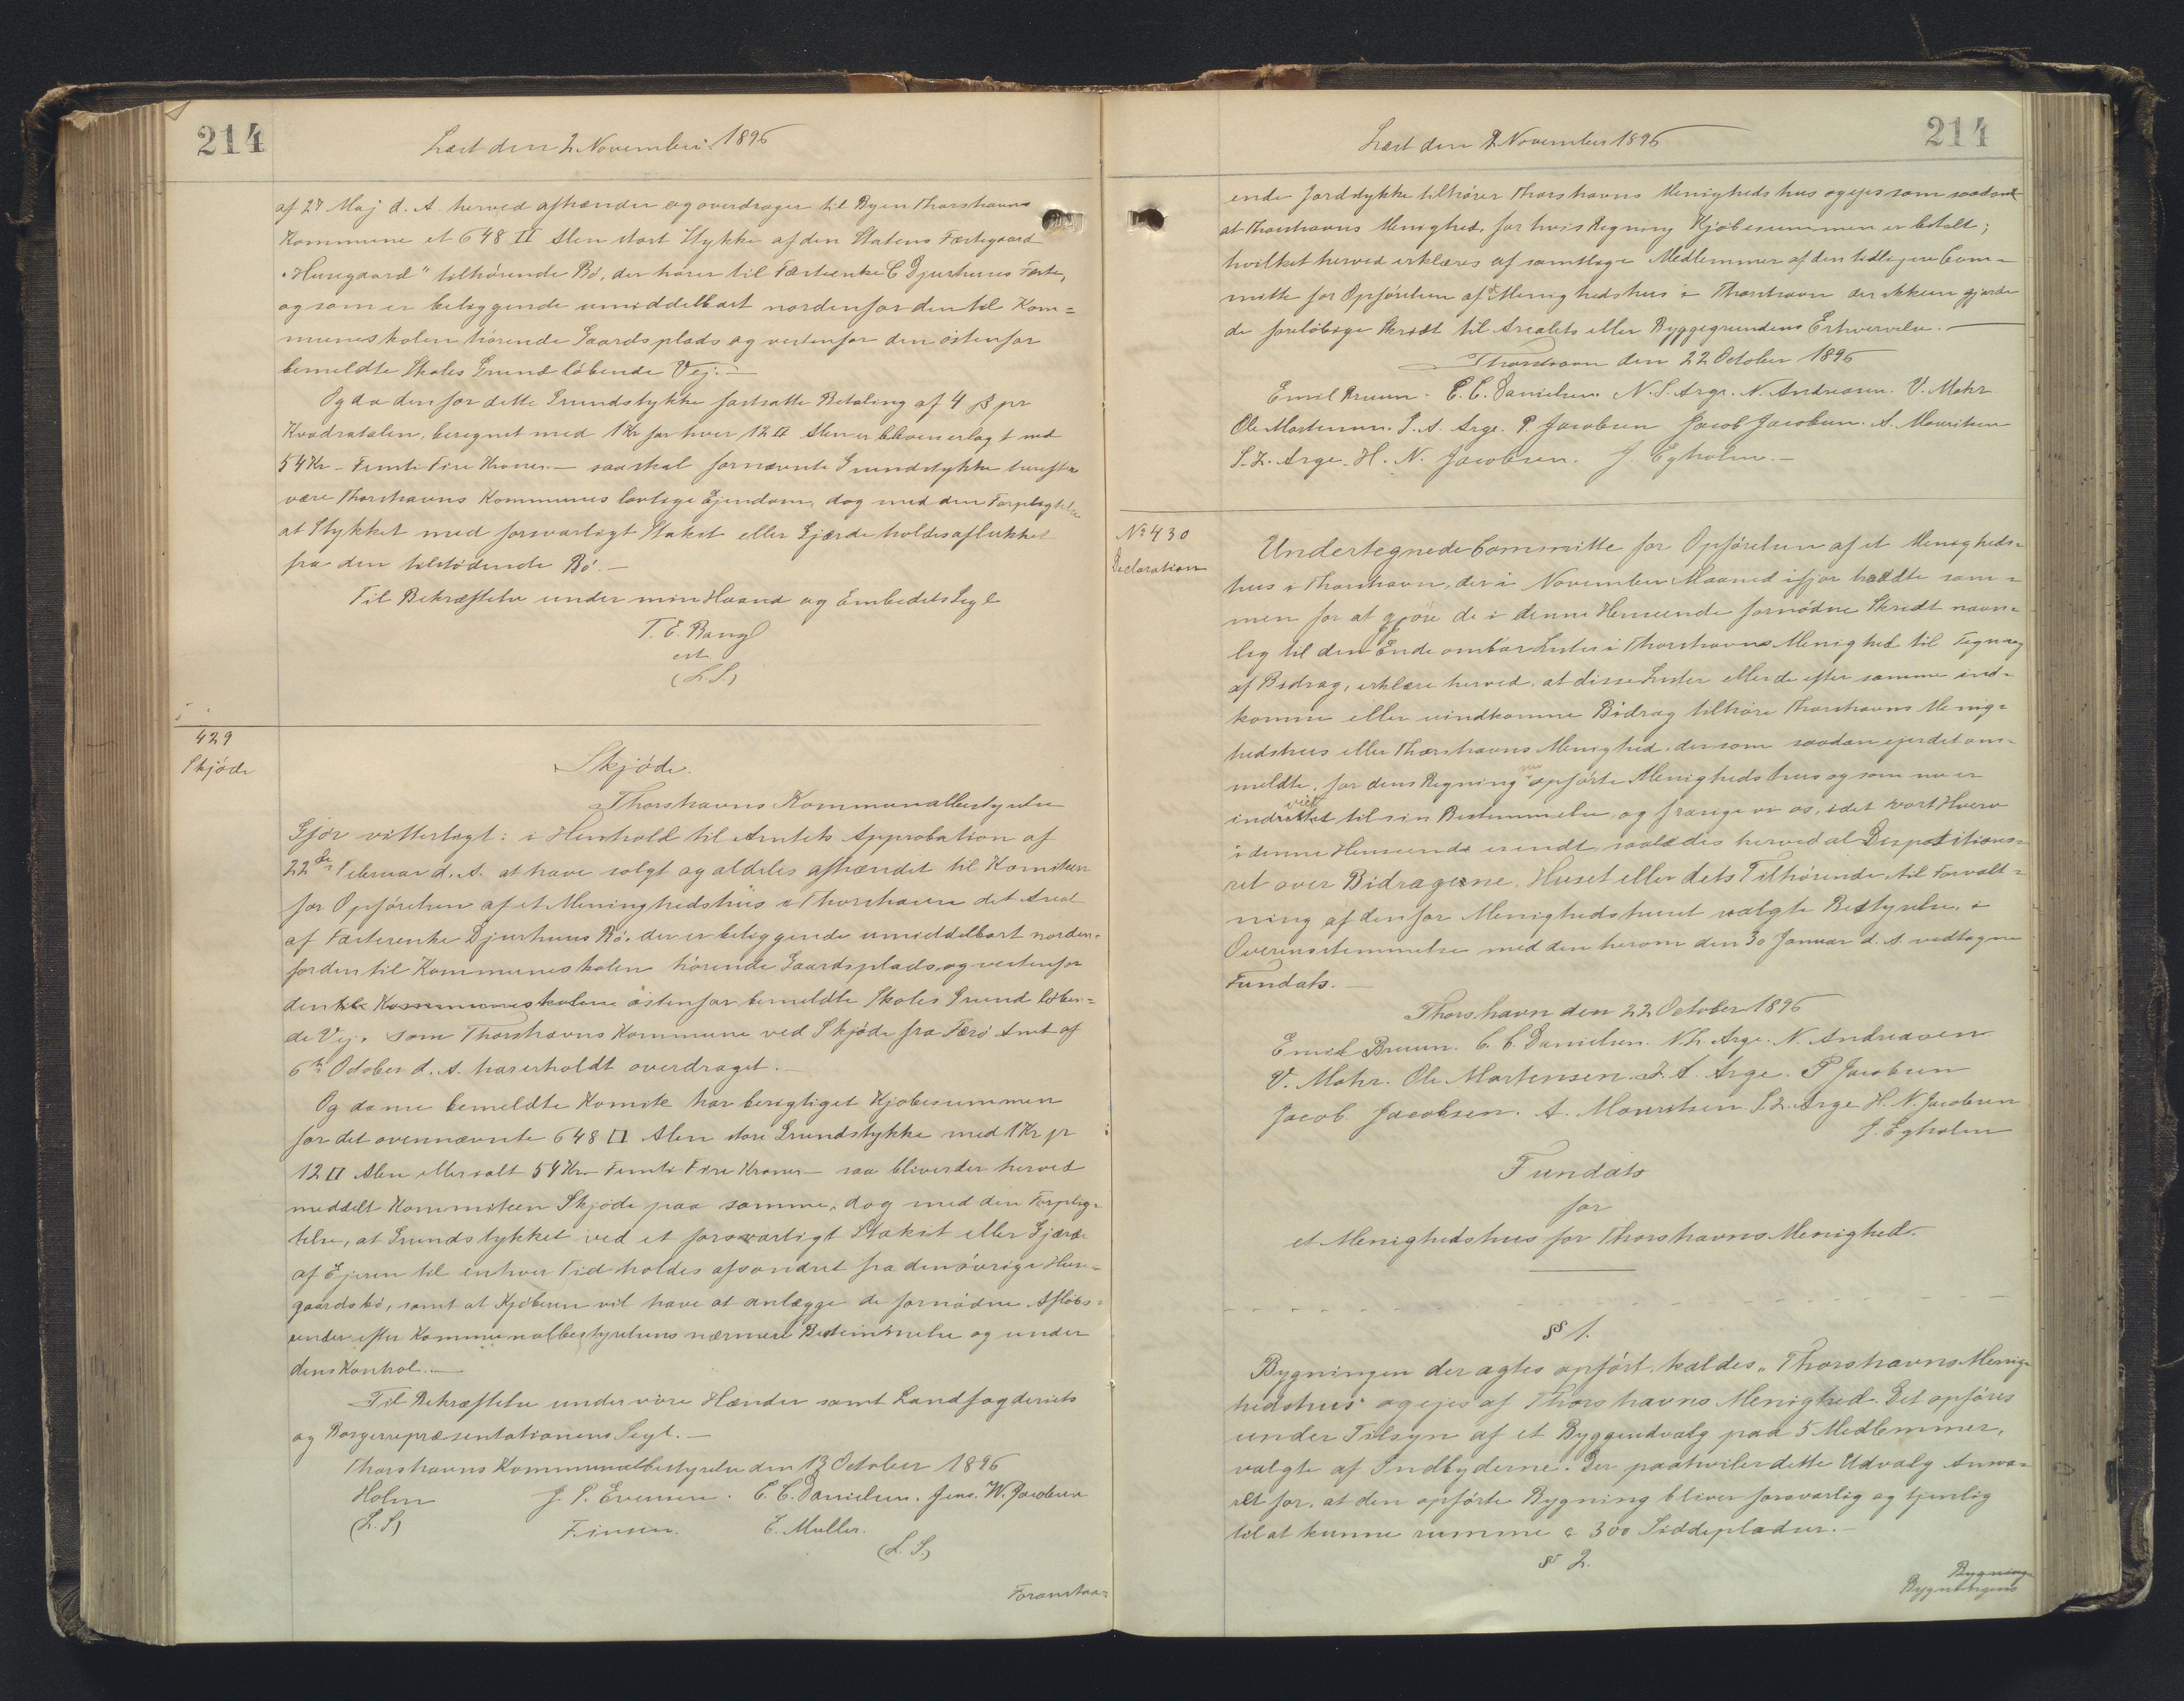 214
Læst den 2 November 1896
af 27 Maj d. A. herved afhænder og overdrager til Byen Thorshavns
Kommune et 648 □ Alen stort Stykke af den Statens Fæstegaard
"Husegaard" tilhørende Bø, der hører til Fæsteenke C Djurhuus Fæste,
og som er beliggende umiddelbart nordenfor den til Kom=
muneskolen hørende Gaardsplads og vestenfor den østenfor
bemeldte Skoles Grund løbende Vej.—
Og da den for dette Grundstykke fastsatte Betaling af 4 β pr
Kvadratalen, beregnet med 1 Kr for hver 12 □ Alen er bleven erlagt med
54 Kr – Femti Fire Kroner – saa skal fornævnte Grundstykke herefter
være Thorshavns Kommunes lovlige Ejendom, dog med den Forpligtelse
at Stykket med forsvarligt Stakit eller Gjærde holdes aflukket
fra den tilstødende Bø.—
Til Bekræftelse under min Haand og Embedets Segl
T. E. Bang
cst.
(L.S.)
429
Skjöde
Skjöde.
Thorshavns Kommunalbestyrelse
Gjör vitterligt: i Henhold til Amtets Approbation af
22de Februar d. A. at have solgt og aldeles afhændet til Komiteen
for Opførelsen af et Meninghedshus i Thorshavn det Areal
af Fæsterenke Djurhuus Bø, der er beliggende umiddelbart norden=
for den til Kommuneskolen hørende Gaardsplads og vestenfor
den til Kommuneskolen østenfor bemeldte Skoles Grund løben=
de Vej, som Thorshavns Kommune ved Skjøde fra Færø Amt af
6te October d. A. har erholdt overdraget.—
Og da nu bemeldte Komite har berigtiget Kjøbesummen
for det ovennævnte 648 □ Alen store Grundstykke med 1 Kr pr
12 □ Alen eller ialt 54 Kr – Femti Fire Kroner – saa bliver der herved
meddelt Kommiteen Skjøde paa samme, dog med den Forplig=
telse, at Grundstykket ved et forsvarligt Stakit eller Gjærde
af Ejeren til enhver Tid holdes afsondret fra den øvrige Huse=
gaardsbø, samt at Kjøberen vil have at anlægge de fornødne Afløbs=
render efter Kommunalbestyrelsens nærmere Bestemmelse og under
dens Kontrol.—
Til Bekræftelse under vore Hænder samt Landfogderiets
og Borgerrepræsentationens Segl.—
Thorshavns Kommunalbestyrelse den 13 October 1896
Holm J. P. Evensen. C. C. Danielsen. Jens. W. Jacobsen
(L.S) Finsen. E. Müller.
(L.S.)
Foranstaa=
Læst den 2 November 1896
214
ende Jordstykke tilhører Thorshavns Menighedshus og ejes som saadant
at Thorshavns Menighed, for hvis Regning Kjøbesummen er betalt;
hvilket herved erklæres af samtlige Medlemmer af den tidligere Com=
mitte for Opførelsen af et Menighedshus i Thorshavn der ikkun gjorde
de foreløbige Skridt til Arealets eller Byggegrundens Erhvervelse.—
Thorshavn den 22 October 1896
Emil Bruun. C. C. Danielsen N. S. Arge. N. Andreasen. V. Mohr
Ole Mortensen. J. A. Arge. P. Jacobsen Jacob Jacobsen. A. Mouritsen
S. L. Arge. H. N. Jacobsen. J. Egholm.—
No 430
Declaration
Undertegnede Committe for Opførelsen af et Menigheds=
hus i Thorshavn, der i November Maaned ifjor traadte sam=
men for at gjøre de i denne Henseende fornødne Skridt navn=
lig til den Ende ombar Lister i Thorshavns Menighed til Tegning
af Bidrag, erklære herved, at disse Lister eller de efter samme ind=
komne eller uindkomne Bidrag tilhøre Thorshavns Menig=
hedshus eller Thorshavns Menighed, der som saadan ejer det om=
meldte, for dens Regning nu opførte Menighedshus og som nu er
indviet til sin Bestemmelse, og frasige vi os, idet vort Hverv
i denne Henseende er endt, saaledes herved al Dispositions=
ret over Bidragene, Huset eller dets Tilhørende, til Forvalt=
ning af den for Menighedshuset valgte Bestyrelse, i
Overensstemmelse med den herom den 30 Januar d. A. vedtagne
Fundats.—
Thorshavn den 22 October 1896
Emil Bruun. C. C. Danielsen. N. S. Arge. N. Andreasen
V. Mohr. Ole Mortensen. J. A. Arge. P Jacobsen
Jacob Jacobsen. A. Mouritsen S. L. Arge H. N. Jacobsen
J. Egholm
Fundats
for
et Menighedshus for Thorshavns Menighed.
§ 1.
Bygningen der agtes opført, kaldes "Thorshavns Menig=
hedshus" og ejes af Thorshavns Menighed. Det opføres
under Tilsyn af et Byggeudvalg paa 5 Medlemmer,
valgte af Indbyderne. Der paahviler dette Udvalg Ansva=
ret for, at den opførte Bygning bliver forsvarlig og tjenlig
til at kunne rumme c 300 Siddepladser.—
§ 2.
Bygnings
Bygningens